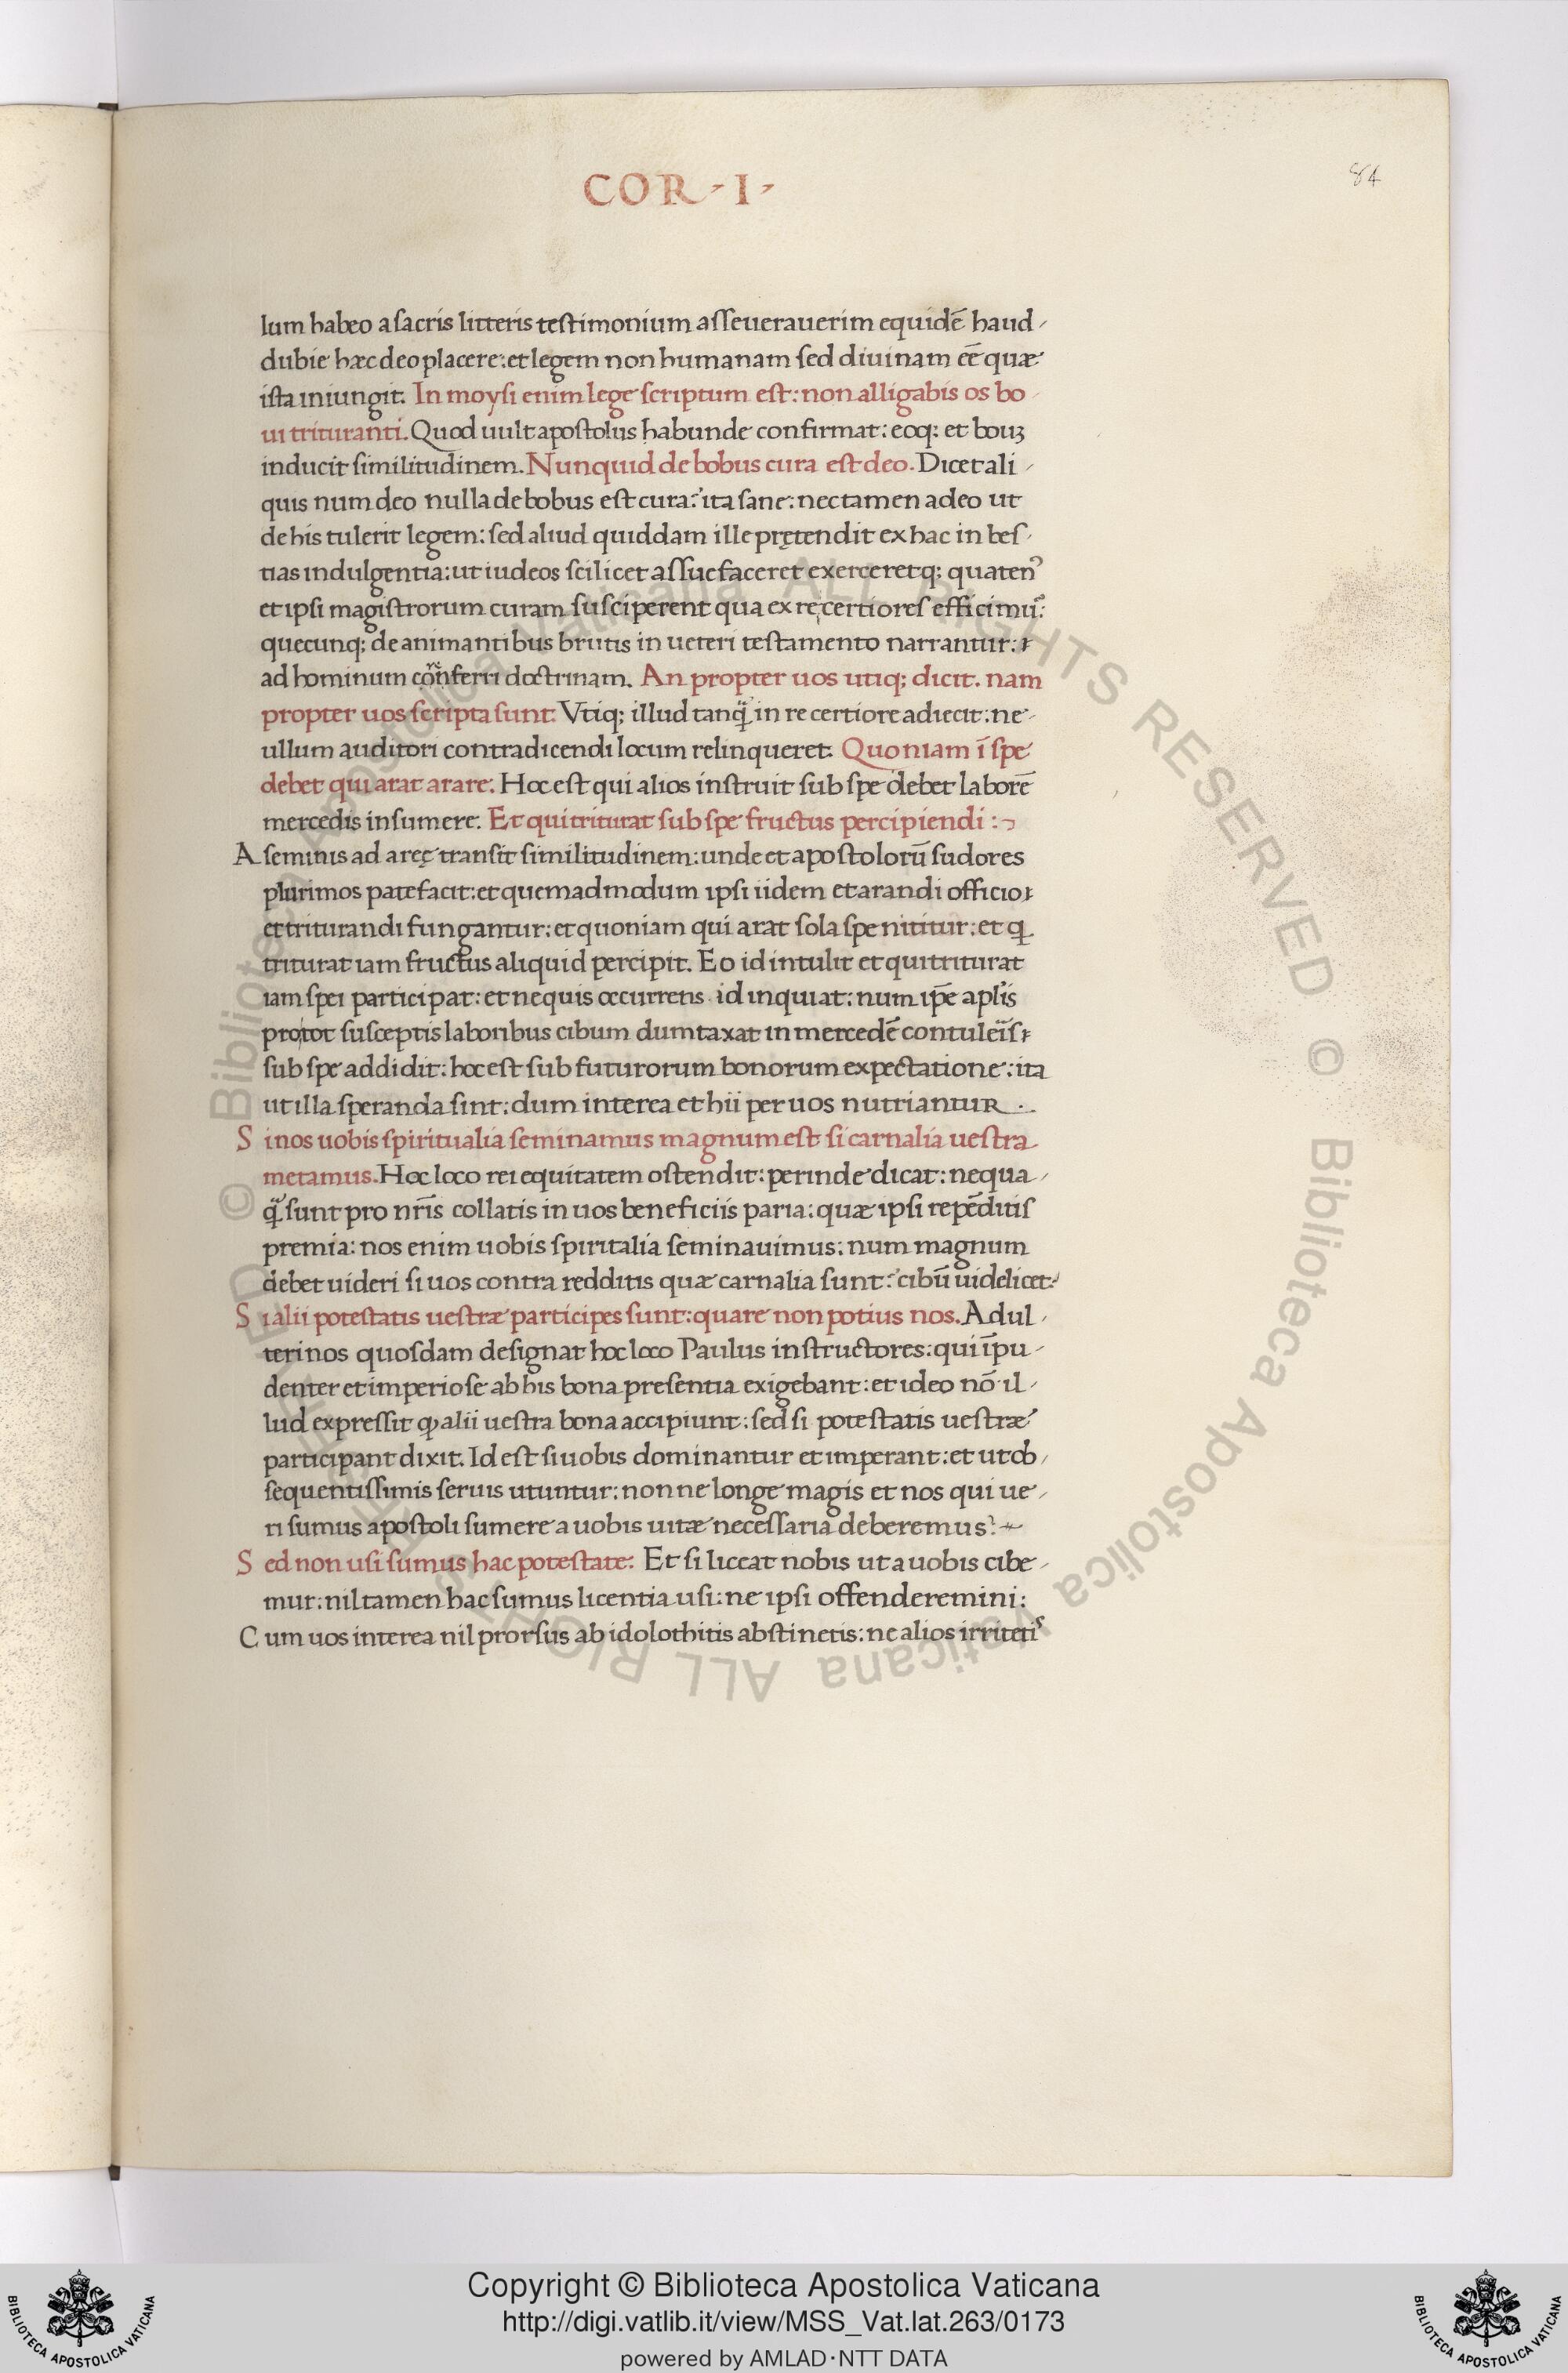 COR · I ·
84
lum habeo a sacris litteris testimonium asseuerauerim equidē haud-
dubie hæc deo placere: et legem non humanam sed diuinam eē quæ
ista iniungit. In moysi enim lege scriptum est: non alligabis os bo-
ui trituranti. Quod uult apostolus habunde confirmat: eoq; et bouꝫ
inducit similitudinem. Nunquid de bobus cura est deo. Dicet ali-
quis num deo nulla de bobus est cura? ita sane: nec tamen adeo ut
de his tulerit legem: sed aliud quiddam ille prętendit ex hac in bes-
tias indulgentia: ut iudeos scilicet assuefaceret exerceretq; quatenꝰ
et ipsi magistrorum curam susciperent qua ex re certiores efficimur̃:
quecunq; de animantibus brutis in ueteri testamento narrantur:
ad hominum conferri doctrinam. An propter uos utiq; dicit. nam
propter uos scripta sunt. Vtiq; illud tanq̃ in re certiore adiecit: ne
ullum auditori contradicendi locum relinqueret. Quoniam ī spe
debet qui arat arare. Hoc est qui alios instruit sub spe debet laborē
mercedis insumere. Et qui triturat sub spe fructus percipiendi:
A seminis ad areę transit similitudinem: unde et apostolorū sudores
plurimos patefacit: et quemadmodum ipsi iidem et arandi officio
et triturandi fungantur: et quoniam qui arat sola spe nititur: et ꝗ
triturat iam fructus aliquid percipit. Eo id intulit et qui triturat
iam spei participat: et nequis occurrens id inquiat: num ip̄e apl̃is
pro tot susceptis laboribus cibum dumtaxat in mercedē contuleris̃
sub spe addidit: hoc est sub futurorum bonorum expectatione: ita
ut illa speranda sint: dum interea et hii per uos nutriantur.
Si nos uobis spiritualia seminamus magnum est si carnalia uestra
metamus. Hoc loco rei equitatem ostendit: perinde dicat: nequa-
q̃ sunt pro nr̄is collatis in uos beneficiis paria: quæ ipsi repēditis
premia: nos enim uobis spiritalia seminauimus: num magnum
debet uideri si uos contra redditis quæ carnalia sunt? cibū uidelicet:
Si alii potestatis uestræ participes sunt: quare non potius nos. Adul-
terinos quosdam designat hoc loco Paulus instructores: qui īpu-
denter et imperiose ab his bona presentia exigebant: et ideo nō il-
lud expressit ꝙ alii uestra bona accipiunt: sed si potestatis uestræ
participant dixit. Id est si uobis dominantur et imperant: et ut ob-
sequentissimis seruis utuntur: nonne longe magis et nos qui ue-
ri sumus apostoli sumere a uobis uitæ necessaria deberemus?
Sed non usi sumus hac potestate. Et si liceat nobis ut a uobis cibe-
mur: nil tamen hac sumus licentia usi: ne ipsi offenderemini:
Cum uos interea nil prorsus ab idolothitis abstinetis: ne alios irritetis
© Biblioteca Apostolica Vaticana ALL RIGHTS RESERVED © Biblioteca Apostolica Vaticana ALL RIGHTS RESERVED
BIBLIOTECA APOSTOLICA VATICANA
Copyright © Biblioteca Apostolica Vaticana
http://digi.vatlib.it/view/MSS_Vat.lat.263/0173
powered by AMLAD·NTT DATA
BIBLIOTECA APOSTOLICA VATICANA